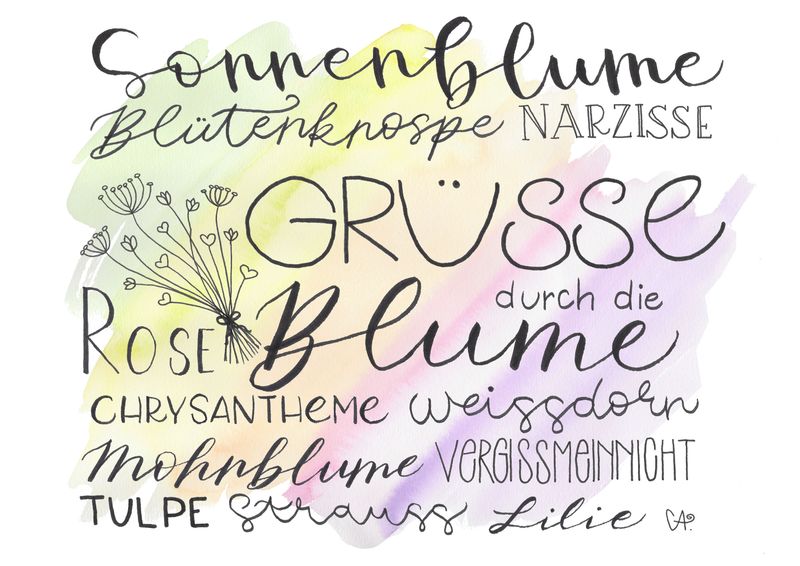 Sonnenblume
Blütenknospe NARZISSE
GRÜSSE
durch die
ROSE Blume
CHRYSANTHEME weissdorn
Mohnblume VERGISSMEINNICHT
TULPE Strauss Lilie GA.